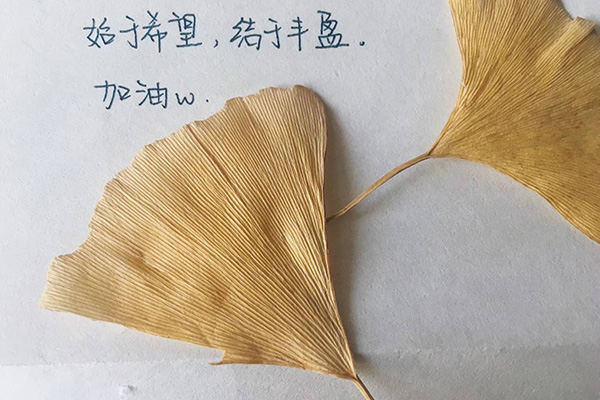 始于希望，结于丰盈.
加油w.